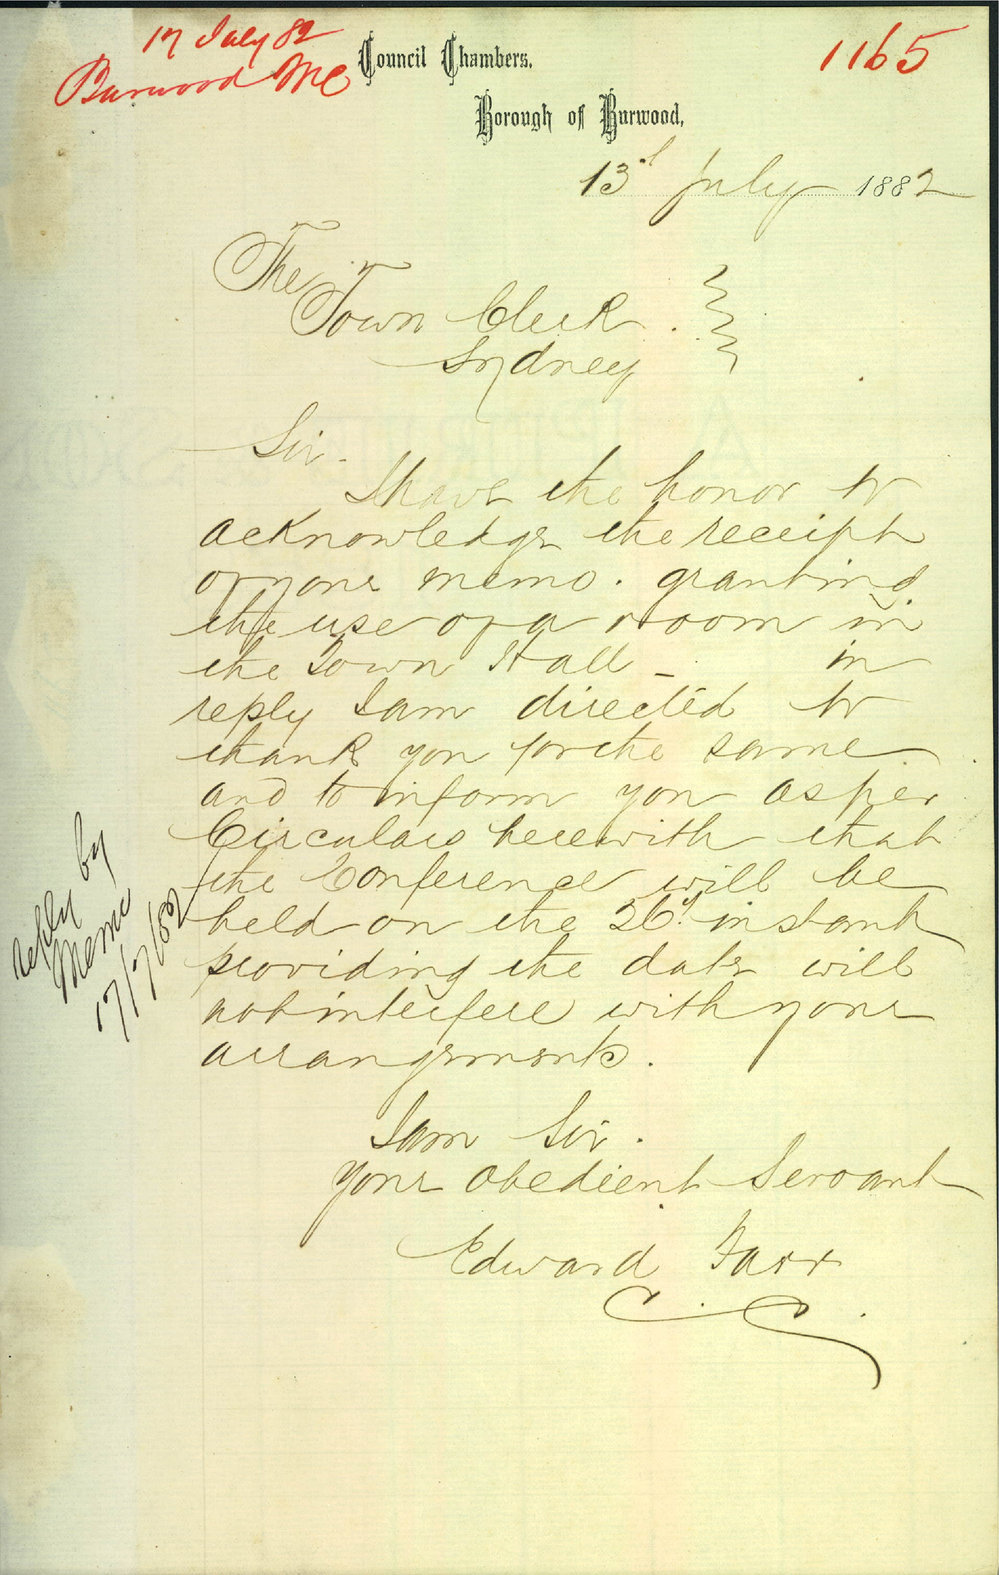 17 July 82
Burwood M C
1165
Council Chambers,
Borough of Burwood,
13th July 1882
The
Town Clerk.
Sydney
Sir.
I have the honor to
acknowledge the receipt
of your memo. granting
the use of a room in
the Town Hall - in
reply I am directed to
thank you for the same
and to inform you as per
Circulars herewith that
the Conference will be
held on the 26th instant
providing the date will
not interfere with your
arrangements.
I am Sir.
Your obedient Servant
Edward Farr
C. C.
reply by
Memo
17/7/82